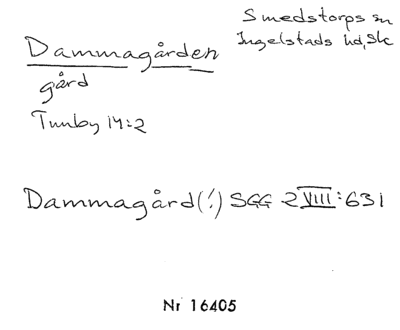 Smedstorps sn
Ingelstads hd, Sk
Dammagården
gård
Tunby 14:2
Dammagård(!) SGG 2 VIII:631
Nr 16405